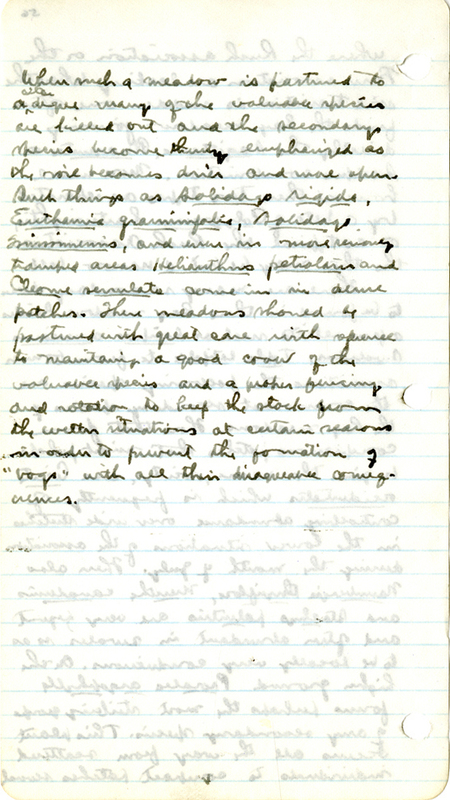 When such a meadow is pastured to
a certain degree many of the valuable species
are killed out and the secondary
species become thusly emphasized as
the soil becomes drier and more open
Such things as Solidago rigida,
Euthamia graminifolia, Solidago
missouriensis, and even in more severely
tramped areas Helianthus petiolaris and
Cleome serrulata come in in dense
patches. These meadows should be
pastured with great care with reference
to maintaining a good cover of the
valuable species and a proper fencing
and rotation to keep the stock from
the wetter situations at certain seasons
in order to prevent the formation of
"bogs" with all their disagreeable conseq-
uences.